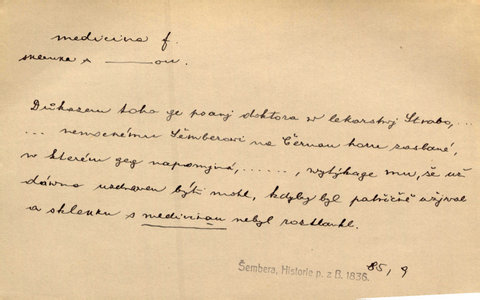 medicina f.
sklenka s ——ou.
Důkazem toho ge psanj doktora w lekarstwj Strabo,...
... nemocnému Sěmberowi na Černau horu zaslané,
w kterém geg napomjná, ......, wytýkage mu, že už
dáwno uzdrawen býti mohl, kdyby byl patřičně užjwal
a sklenku s medicinau nebyl roztlaukl.
Šembera, Historie p. z B. 1836. 85, 9